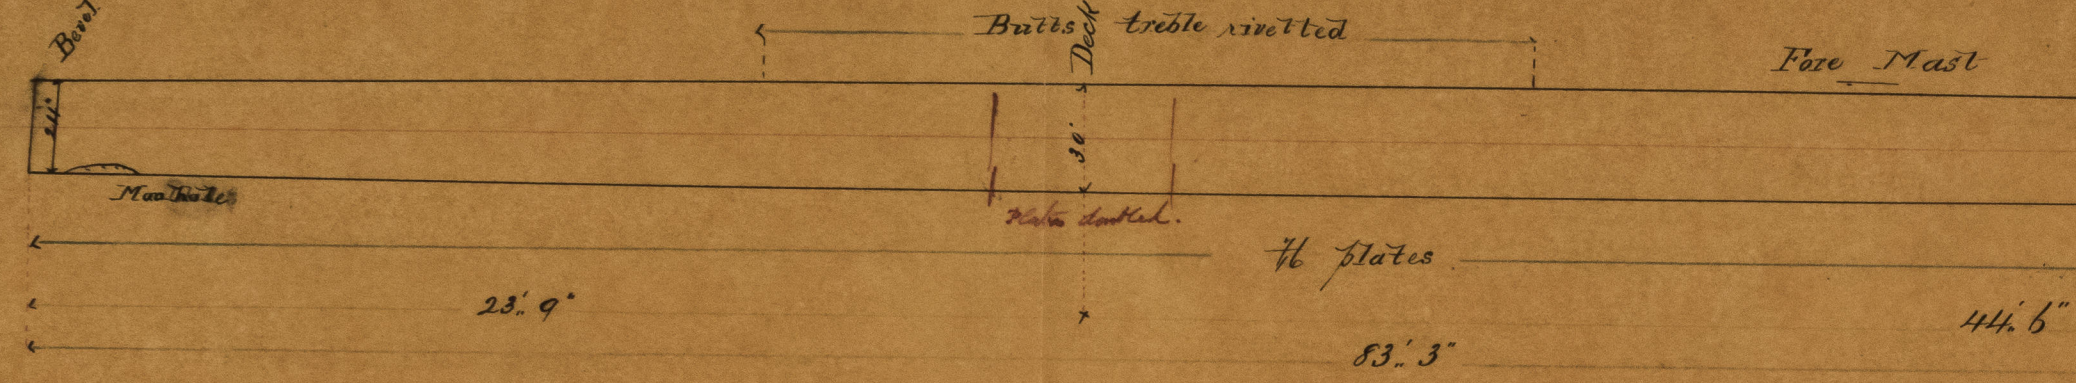 Bevel
Butts treble rivetted
Deck
Fore Mast
24"
30"
Man Hole
Plates doubled.
plates
23'. 9"
44'. 6"
83'. 3"